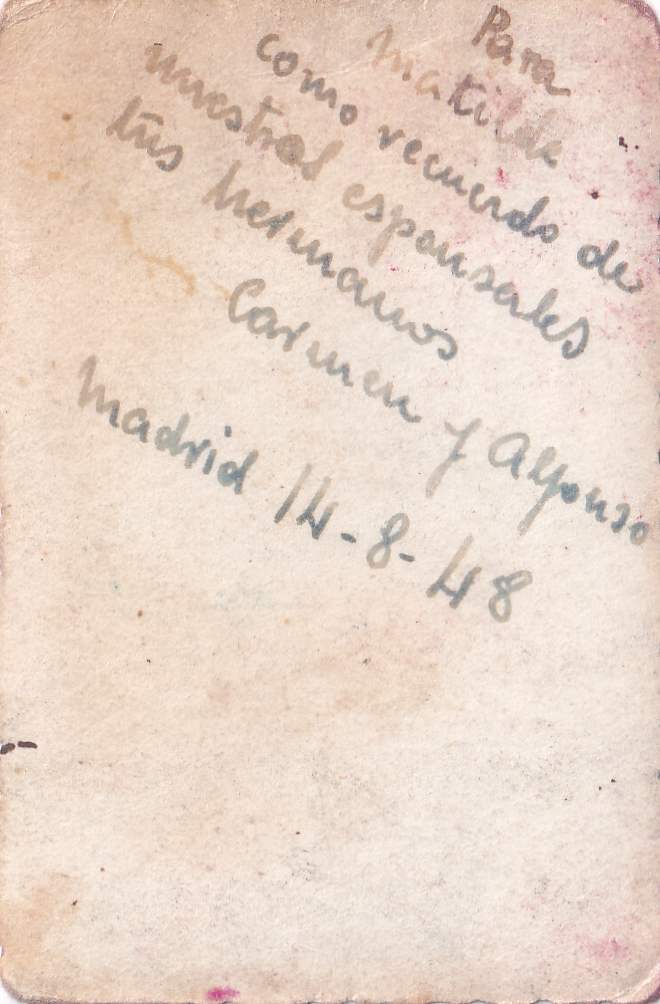 Para
Matilde
como recuerdo de
nuestros esponsales
tus hermanos
Carmen y Alfonso
Madrid 14-8-48